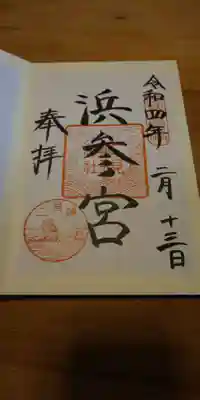 令和四年 二月 十三日
浜参宮
奉拝